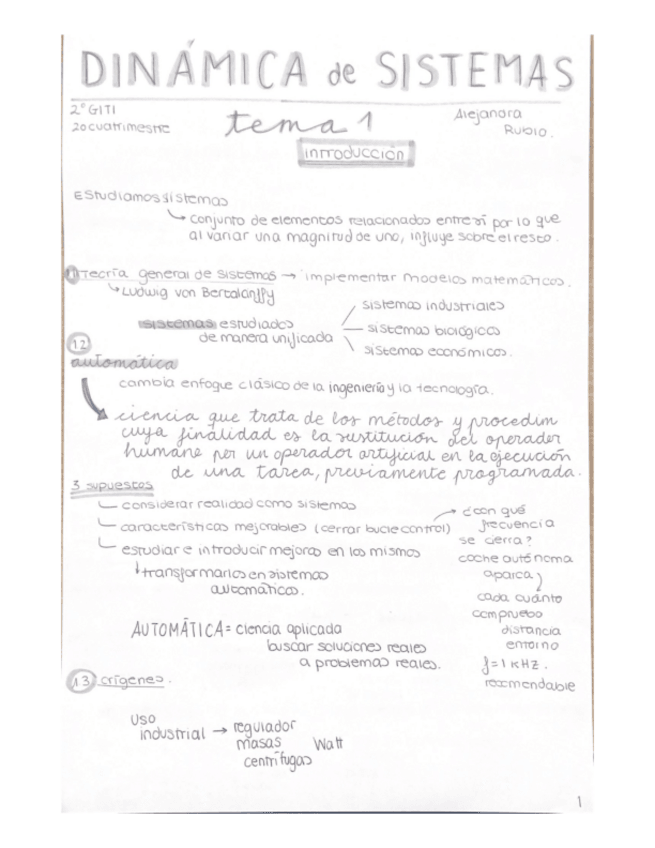 DINÁMICA de SISTEMAS
2º GITI
2o cuatrimestre
tema 1
Alejandra
Rubio.
introducción
Estudiamos sistemas
↳ conjunto de elementos relacionados entre sí por lo que
al variar una magnitud de uno, influye sobre el resto.
1.1 Teoría general de Sistemas → implementar modelos matemáticos.
↳ Ludwig von Bertalanffy
sistemas estudiados
de manera unificada
sistemas industriales
sistemas biológicos
sistemas económicos.
1.2
automática
cambia enfoque clásico de la ingeniería y la tecnología.
ciencia que trata de los métodos y procedim
cuya finalidad es la sustitución del operador
humano por un operador artificial en la ejecución
de una tarea, previamente programada.
3 supuestos
considerar realidad como sistemas
características mejorables (cerrar bucle control)
estudiar e introducir mejoras en los mismos
↓ transformarlos en sistemas
automáticos.
→ ¿con qué
frecuencia
se cierra?
coche autónomo
aparca
cada cuánto
compruebo
distancia
entorno
f = 1 kHz.
recomendable
AUTOMÁTICA = ciencia aplicada
buscar soluciones reales
a problemas reales.
1.3 orígenes.
uso
industrial → regulador
masas Watt
centrífugas
1